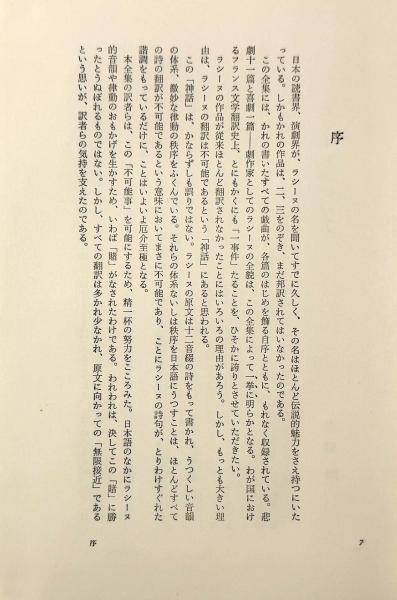 序
日本の読書界、演劇界が、ラシーヌの名を聞いてすでに久しく、その名はほとんど伝説的魅力をさえ持つにいた
っている。しかもかれの作品は、二、三をのぞき、まだ邦訳されてはいなかったのである。
この全集には、かれの書いたすべての戯曲が、各篇のはじめを飾る自序とともに、もれなく収録されている。悲
劇十一篇と喜劇一篇──劇作家としてのラシーヌの全貌は、この全集によって一挙に明らかとなる。わが国におけ
るフランス文学翻訳史上、とにもかくにも「一事件」たることを、ひそかに誇りとさせていただきたい。
ラシーヌの作品が従来ほとんど翻訳されなかったことにはいろいろの理由があろう。しかし、もっとも大きい理
由は、ラシーヌの翻訳は不可能であるという「神話」にあると思われる。
この「神話」は、かならずしも誤りではない。ラシーヌの原文は十二音綴の詩をもって書かれ、うつくしい音韻
の体系、微妙な律動の秩序をふくんでいる。それらの体系ないしは秩序を日本語にうつすことは、ほとんどすべて
の詩の翻訳が不可能であるという意味においてまさに不可能であり、ことにラシーヌの詩句が、とりわけすぐれた
諧調をもっているだけに、ことはいよいよ厄介至極となる。
本全集の訳者らは、この「不可能事」を可能にするため、精一杯の努力をこころみた。日本語のなかにラシーヌ
的音韻や律動のおもかげを生かすため、いわば「賭」がなされたわけである。われわれは、決してこの「賭」に勝
ったとうぬぼれるものではない。しかし、すべての翻訳は多かれ少なかれ、原文に向かっての「無限接近」である
という思いが、訳者らの気持を支えたのである。
序
7